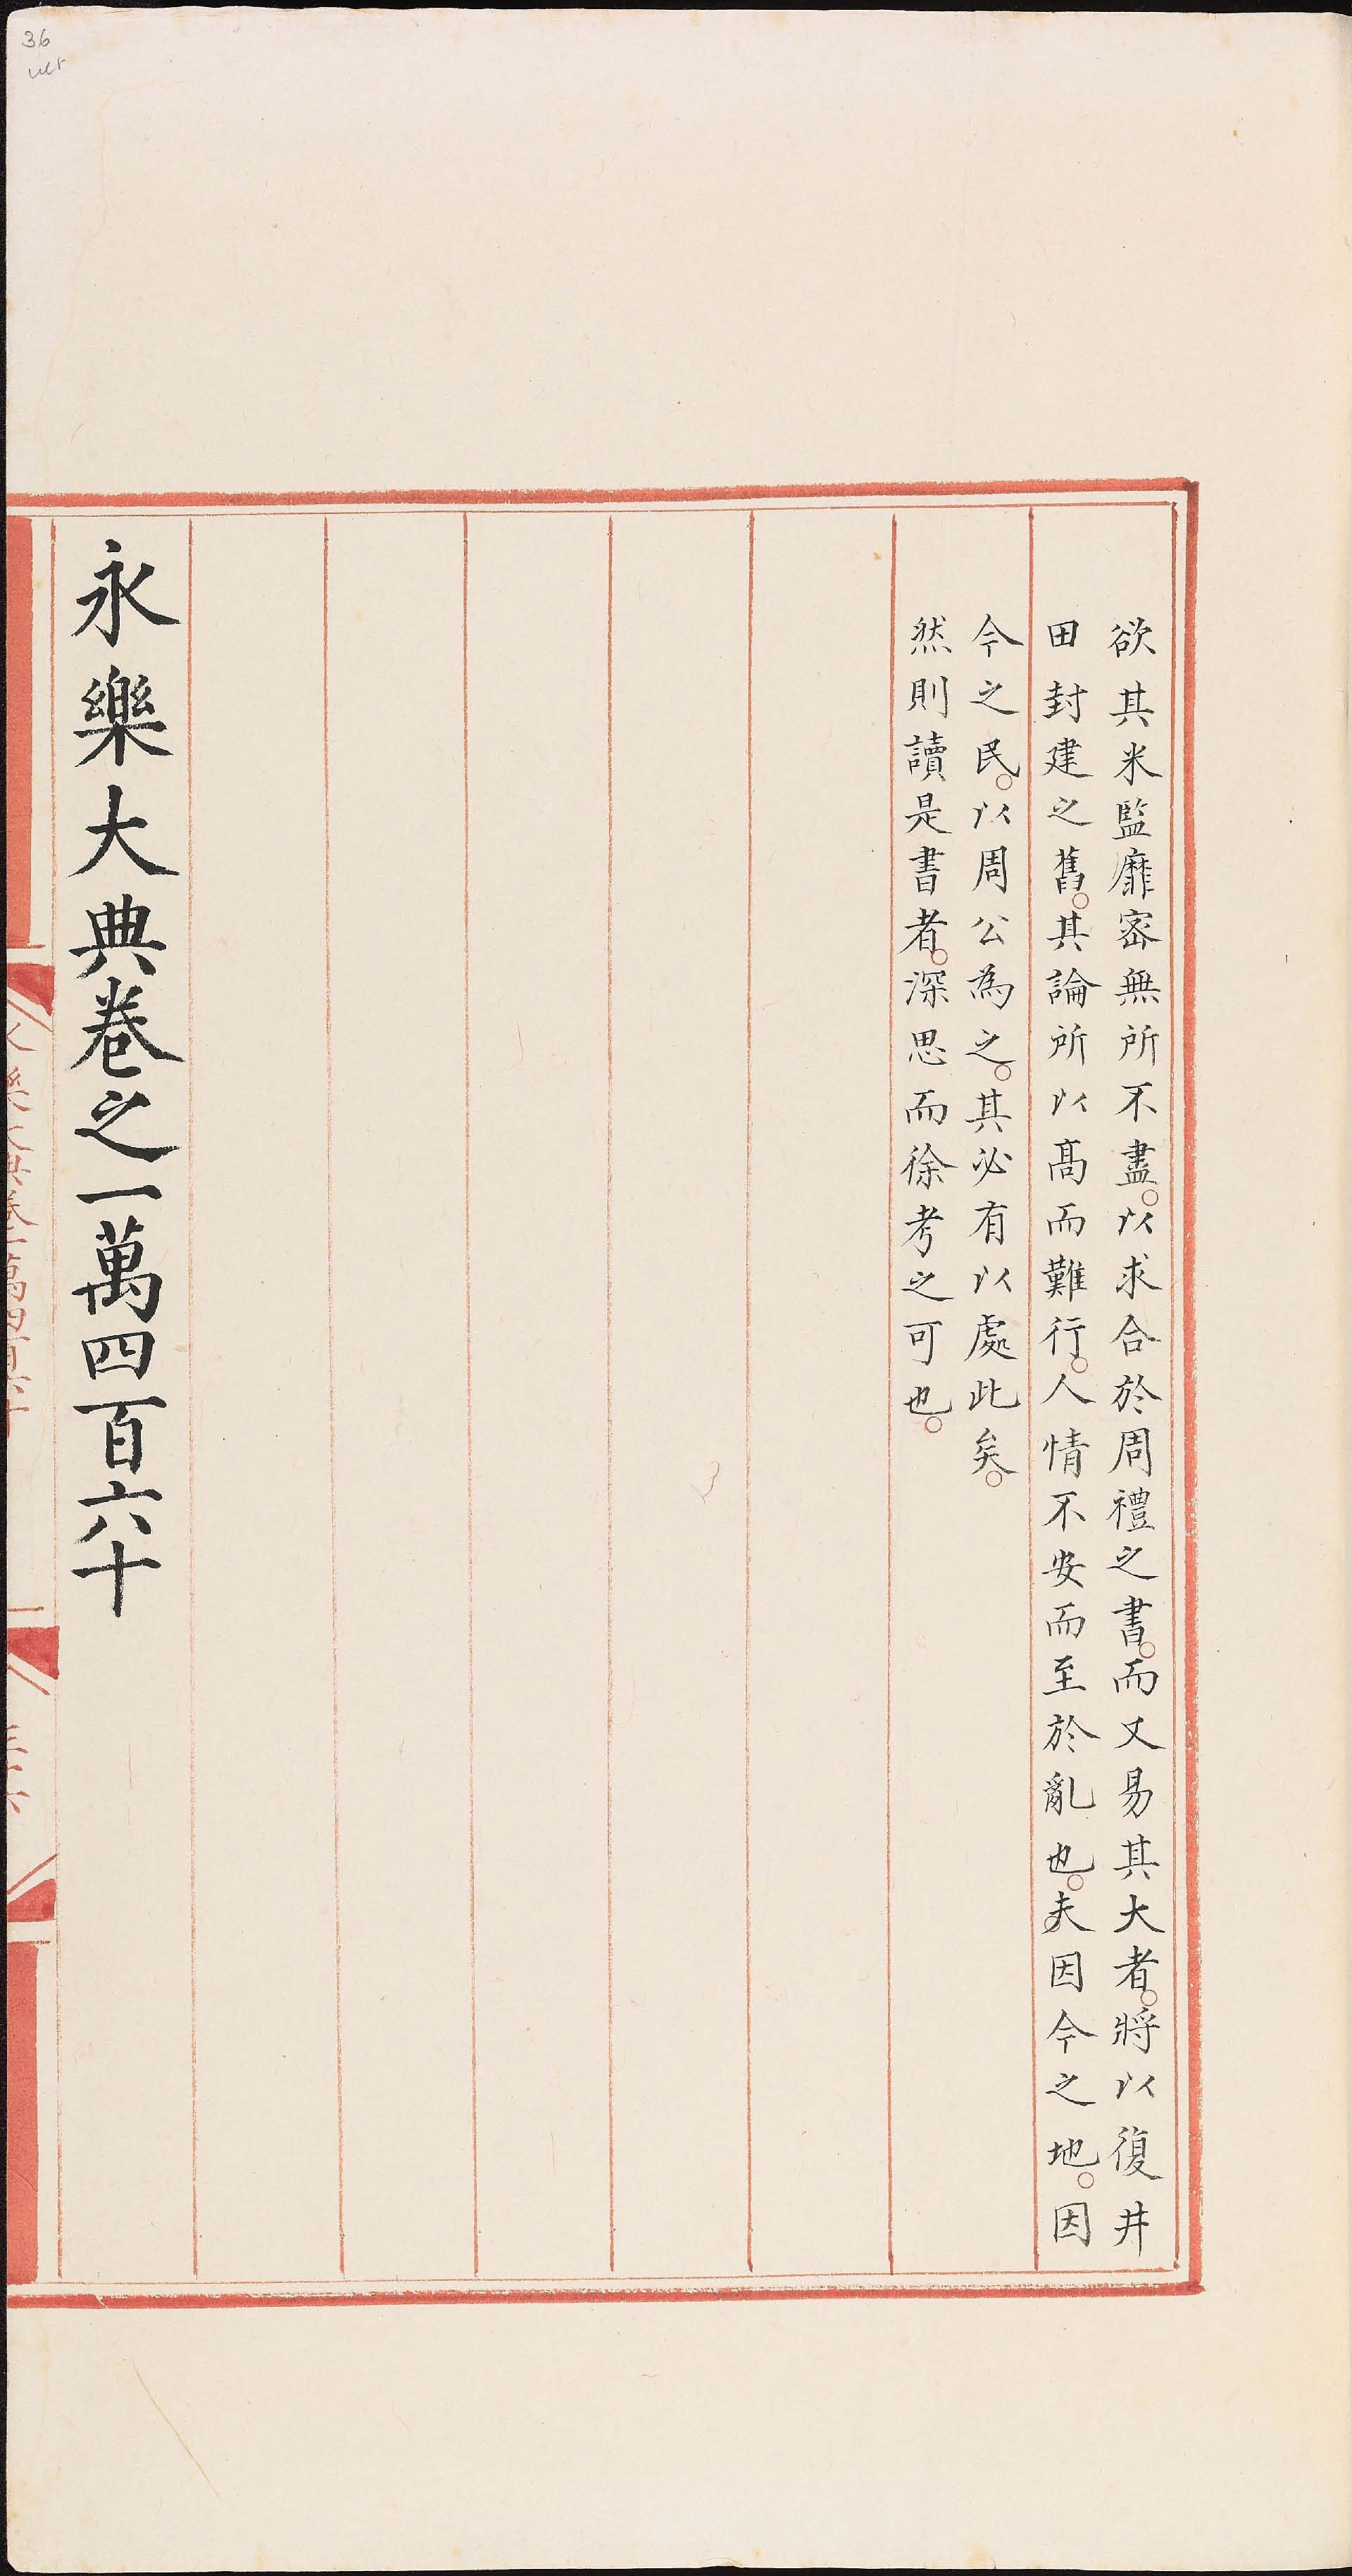 欲其米監靡密無所不盡。以求合於周禮之書。而又易其大者。將以復井
田封建之舊。其論所以高而難行。人情不安而至於亂也。夫因今之地。因
今之民。以周公為之。其必有以處此矣。
然則讀是書者。深思而徐考之可也。
永樂大典卷之一萬四百六十
永樂大典卷一萬四百六十
三十六
36